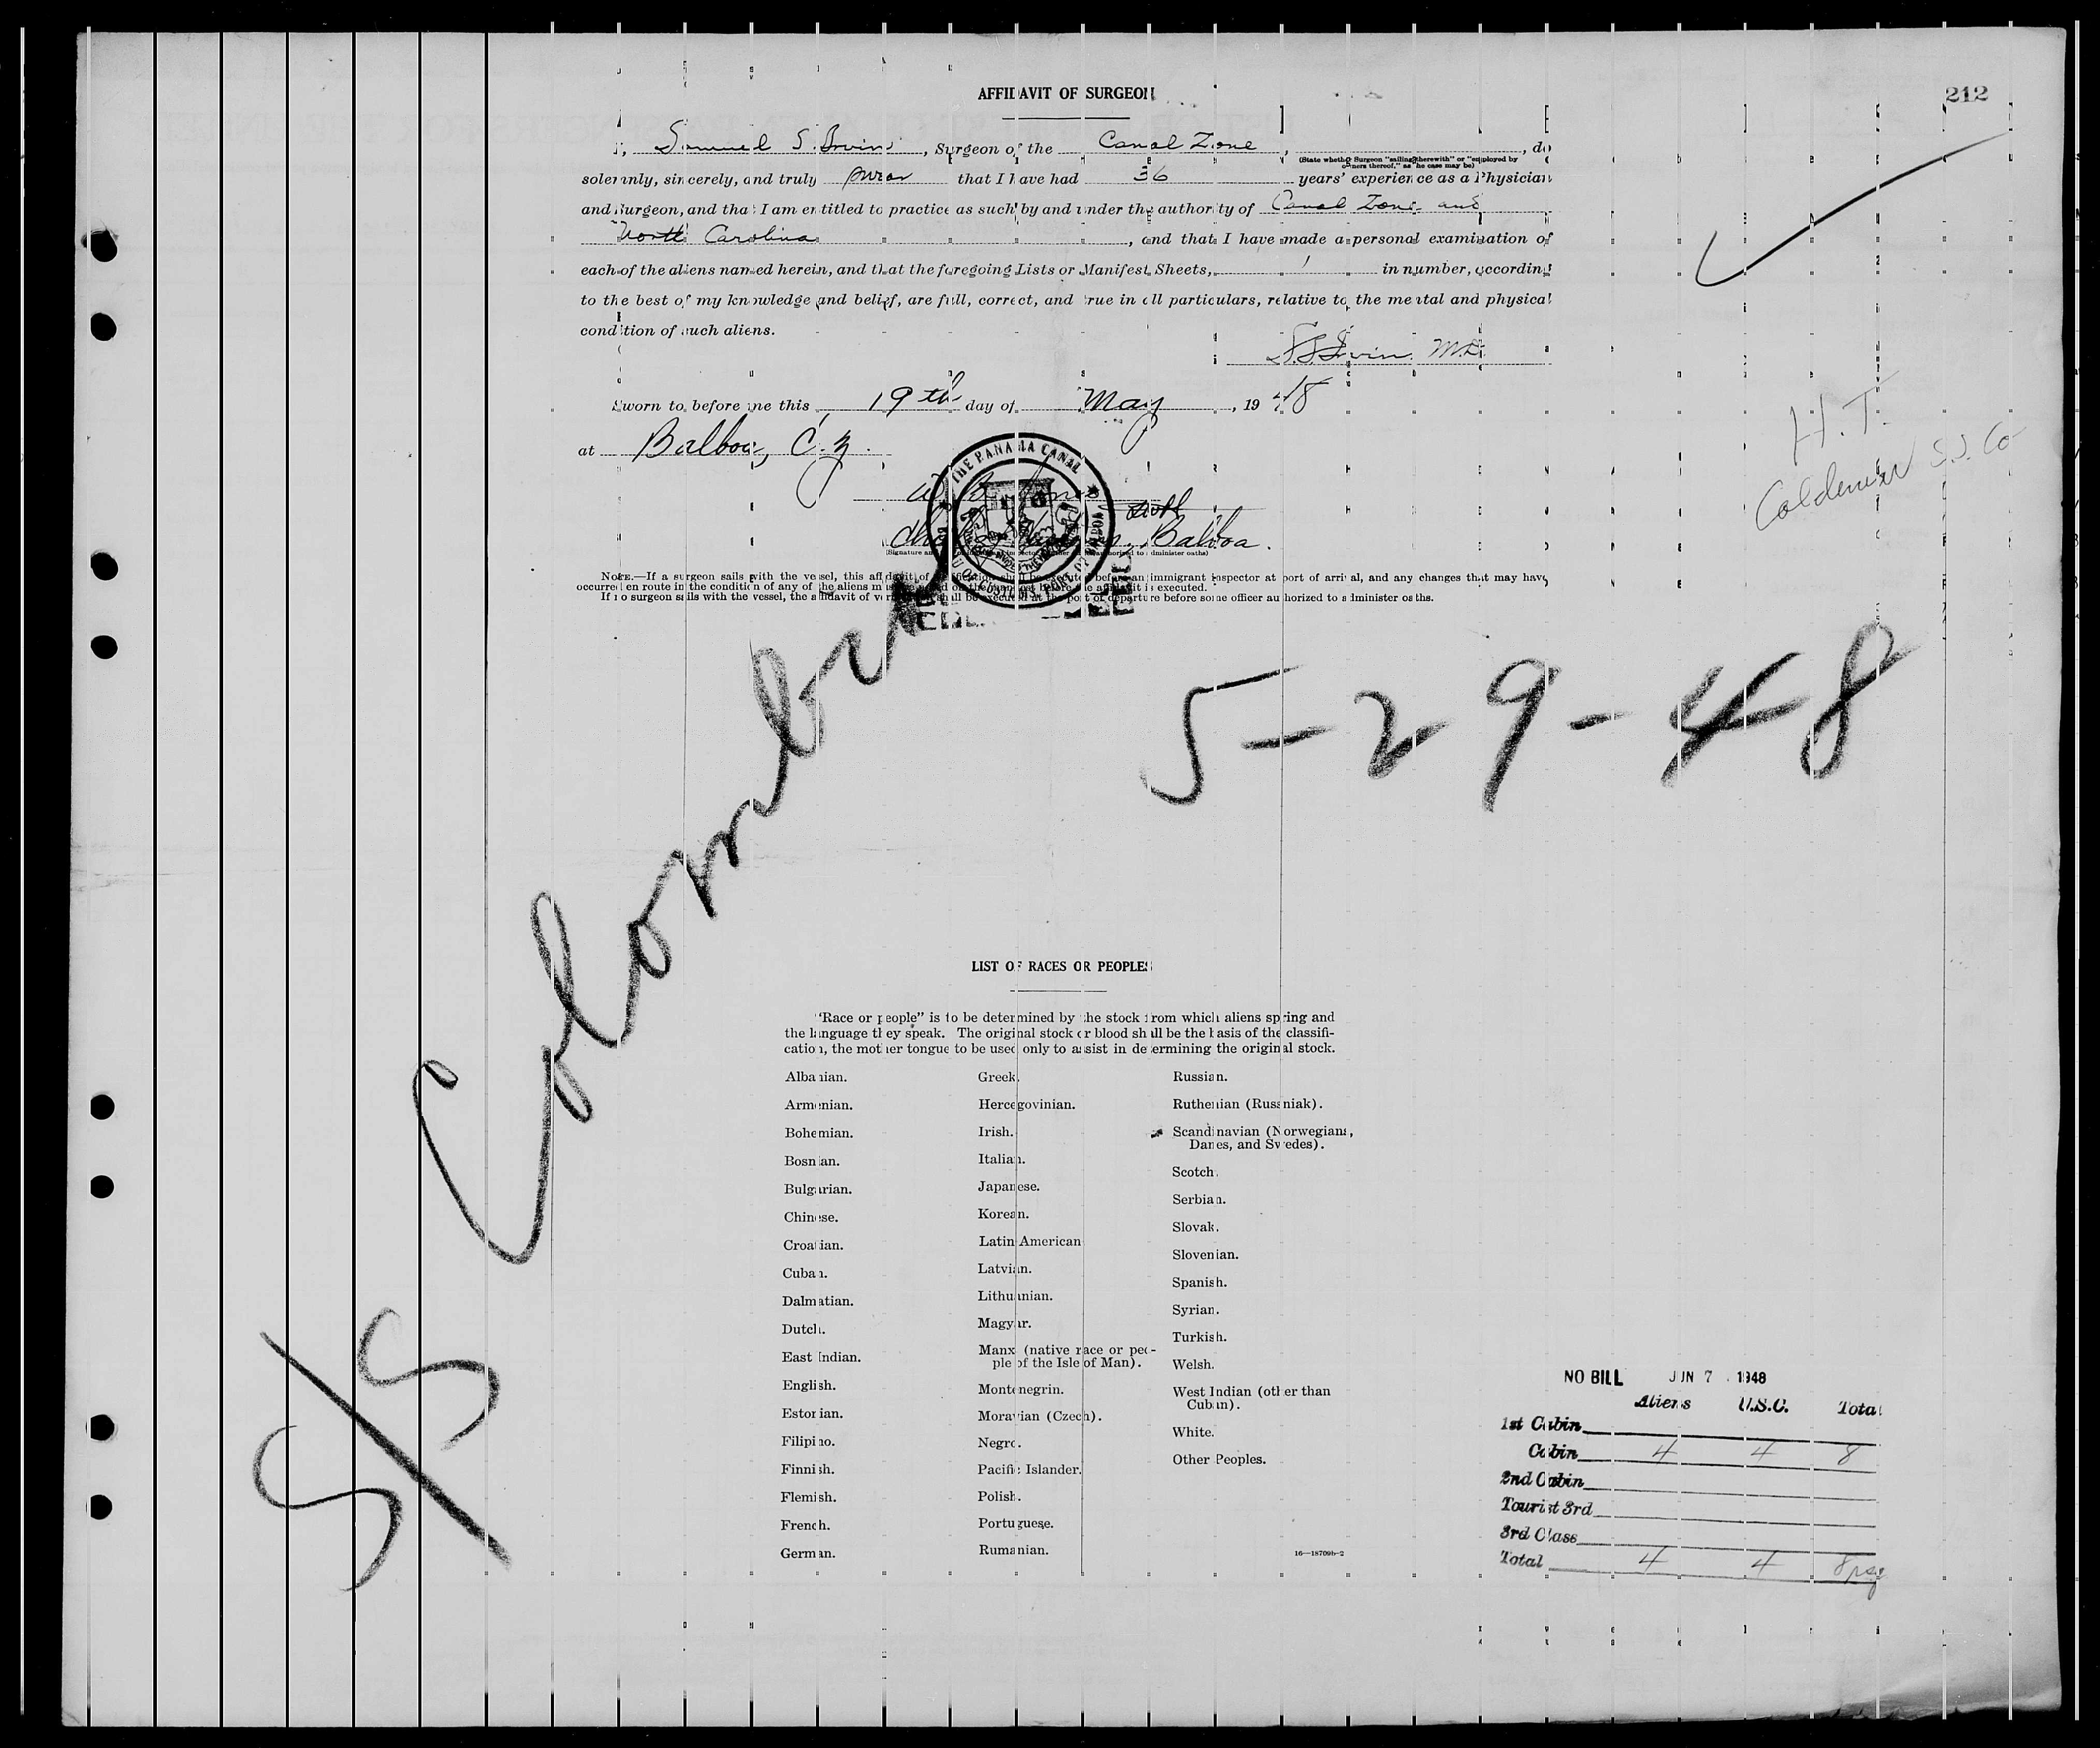 212
AFFIDAVIT OF SURGEON
I, Samuel S. Irvin, Surgeon of the Canal Zone, do
(State whether Surgeon "sailing therewith" or "employed by owners thereof," as the case may be)
solemnly, sincerely, and truly swear that I have had 36 years' experience as a Physician
and Surgeon, and that I am entitled to practice as such by and under the authority of Canal Zone and
North Carolina, and that I have made a personal examination of
each of the aliens named herein, and that the foregoing Lists or Manifest Sheets, 1 in number, according
to the best of my knowledge and belief, are full, correct, and true in all particulars, relative to the mental and physical
condition of such aliens.
S.S. Irvin M.D.
Sworn to before me this 19th day of May, 1948
at Balboa, C.Z.
THE PANAMA CANAL
Balboa.
NOTE.—If a surgeon sails with the vessel, this affidavit of verification shall be executed before an immigrant inspector at port of arrival, and any changes that may have
occurred en route in the condition of any of the aliens must be noted on the manifest before the affidavit is executed.
If no surgeon sails with the vessel, the affidavit of verification shall be executed at the port of departure before some officer authorized to administer oaths.
H.T.
S.S. Co
S/S Colombia
5-29-48
LIST OF RACES OR PEOPLES
"Race or people" is to be determined by the stock from which aliens spring and
the language they speak. The original stock or blood shall be the basis of the classifi-
cation, the mother tongue to be used only to assist in determining the original stock.
Albanian.
Armenian.
Bohemian.
Bosnian.
Bulgarian.
Chinese.
Croatian.
Cuban.
Dalmatian.
Dutch.
East Indian.
English.
Estonian.
Filipino.
Finnish.
Flemish.
French.
German.
Greek.
Hercegovinian.
Irish.
Italian.
Japanese.
Korean.
Latin American
Latvian.
Lithuanian.
Magyar.
Manx (native race or peo-
ple of the Isle of Man).
Montenegrin.
Moravian (Czech).
Negro.
Pacific Islander.
Polish.
Portuguese.
Rumanian.
Russian.
Ruthenian (Russniak).
Scandinavian (Norwegians,
Danes, and Swedes).
Scotch.
Serbian.
Slovak.
Slovenian.
Spanish.
Syrian.
Turkish.
Welsh.
West Indian (other than
Cuban).
White.
Other Peoples.
16—18709b-2
NO BILL JUN 7 1948
Aliens U.S.C. Total
1st Cabin
Cabin 4 4 8
2nd Cabin
Tourist 3rd
3rd Class
Total 4 4 8 psg